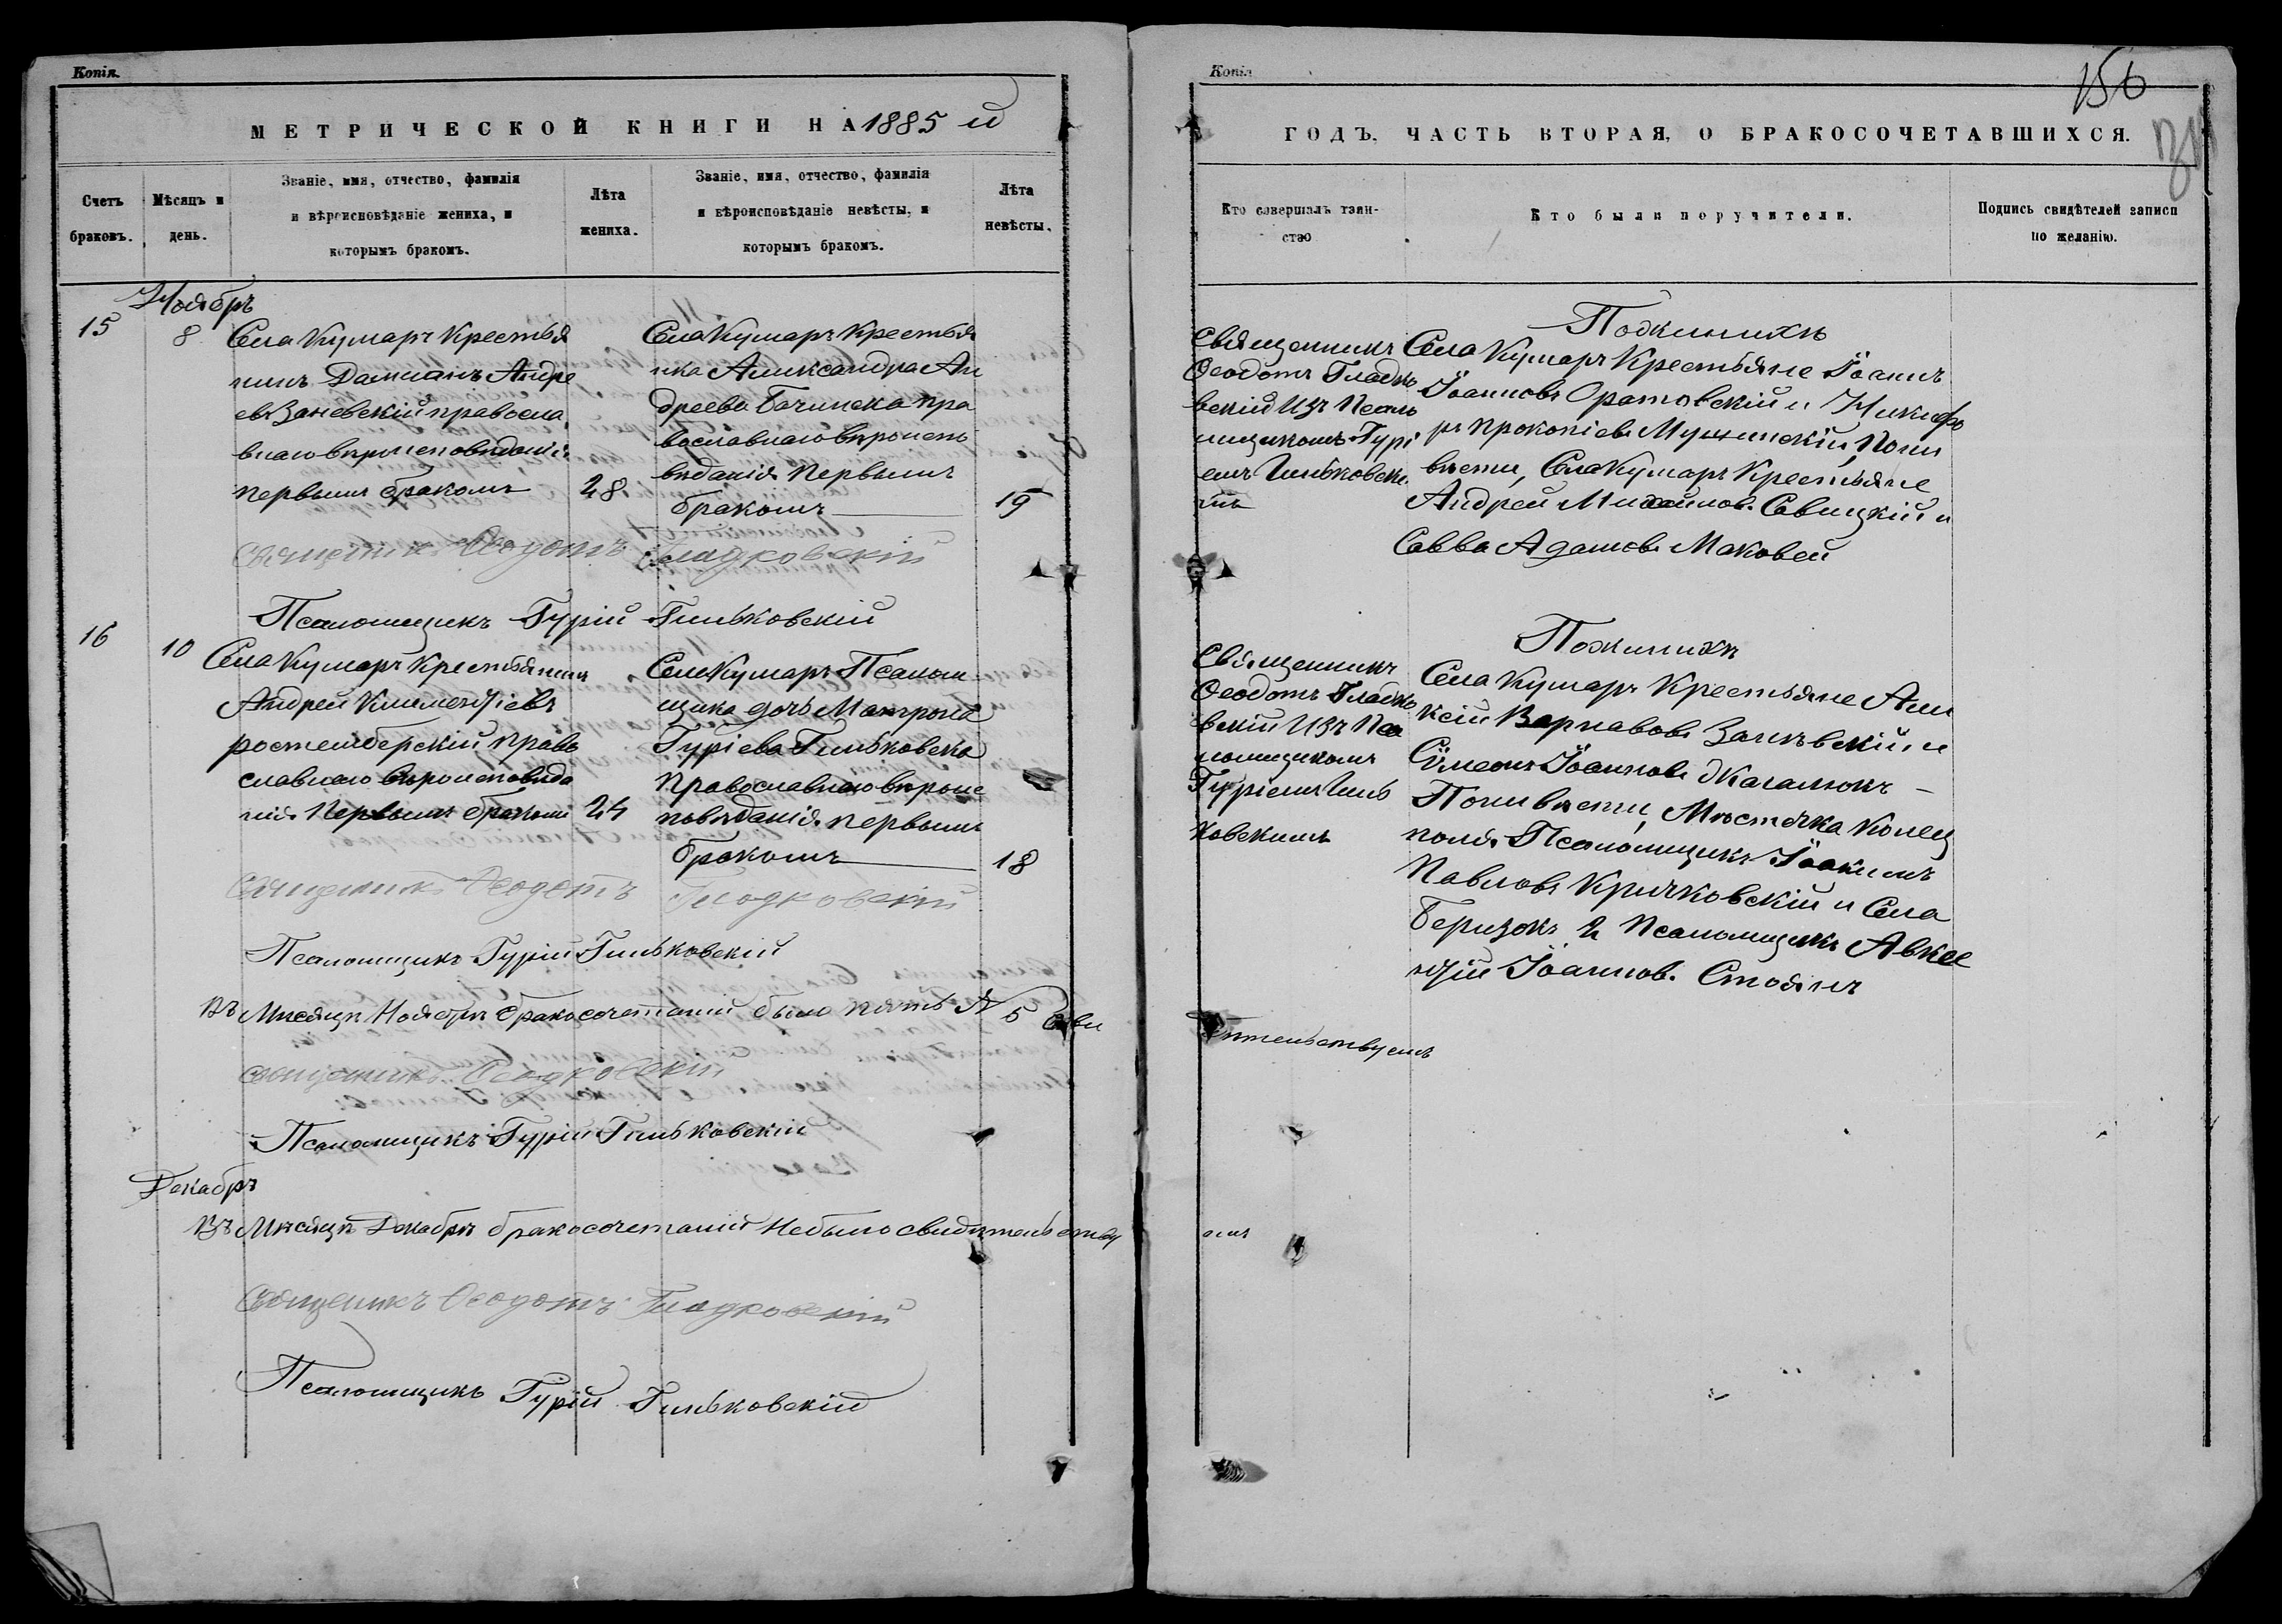 Копія.
МЕТРИЧЕСКОЙ КНИГИ НА 1885 й
Счетъ браковъ.
Мѣсяцъ и день.
Званіе, имя, отчество, фамилія и вѣроисповѣданіе жениха, и которымъ бракомъ.
Лѣта жениха.
Званіе, имя, отчество, фамилія и вѣроисповѣданіе невѣсты, и которымъ бракомъ.
Лѣта невѣсты.
Ноябрь
15
8
Села Кумаръ Крестья
нинъ Даміанъ Андре
евъ Заневскій правосла
внаго вѣроисповѣданія
первымъ бракомъ
28
Села Кумаръ Крестья
нка Александра Ан
дреева Бачинска пра
вославнаго вѣроиспо
вѣданія первымъ
бракомъ
19
Священникъ Ѳеодотъ Гладковскій
Псаломщикъ Гурій Гильковскій
16
10
Села Кумаръ Крестьянинъ
Андрей Климентіевъ
ростемберскій право
славнаго вѣроисповѣда
нія первымъ бракомъ
24
Села Кумаръ Псалом
щика дочь Матрона
Гуріева Гильковска
православнаго вѣроис
повѣданія первымъ
бракомъ
18
Священникъ Ѳеодотъ Гладковскій
Псаломщикъ Гурій Гильковскій
Въ Мѣсяцѣ Ноябрѣ бракосочетаній было пять № 5 Сви
Священникъ Гладковскій
Псаломщикъ Гурій Гильковскій
Декабрь
Въ Мѣсяцѣ Декабрѣ бракосочетаній Небыло свидѣтельству
Священникъ Ѳеодотъ Гладковскій
Псаломщикъ Гурій Гильковскій
Копія
156
ГОДЪ, ЧАСТЬ ВТОРАЯ, О БРАКОСОЧЕТАВШИХСЯ.
Кто совершалъ таинство
Кто были поручители.
Подпись свидѣтелей записи по желанію.
Священникъ
Ѳеодотъ Гладко
вскій Изъ Псало
мщикомъ Гурі
емъ Гильковски
мъ
Пожинихъ
Села Кумаръ Крестьяне Іоаннъ
Іоанновъ Оратовскій и Никифо
ръ Прокопіевъ Мушинскій, Поне
вѣсти, Села Кумаръ Крестьяне
Андрей Михаиловъ Савицкій и
Савва Адамовъ Маковей
Священникъ
Ѳеодотъ Гладко
вскій Изъ Пса
ломщикомъ
Гуріемъ Гиль
ковскимъ
Пожинихъ
Села Кумаръ Крестьяне Але
ксій Варнавовъ Заневскій и
Сѵмеонъ Іоанновъ Жагалюкъ
Поневѣсти, Мѣстечка Конец
поля Псаломщикъ Іоакимъ
Павловъ Кричковскій и Села
Беризокъ Псаломщикъ Авксе
нтій Іоанновъ Стоянъ
дѣтельствуемъ
емъ